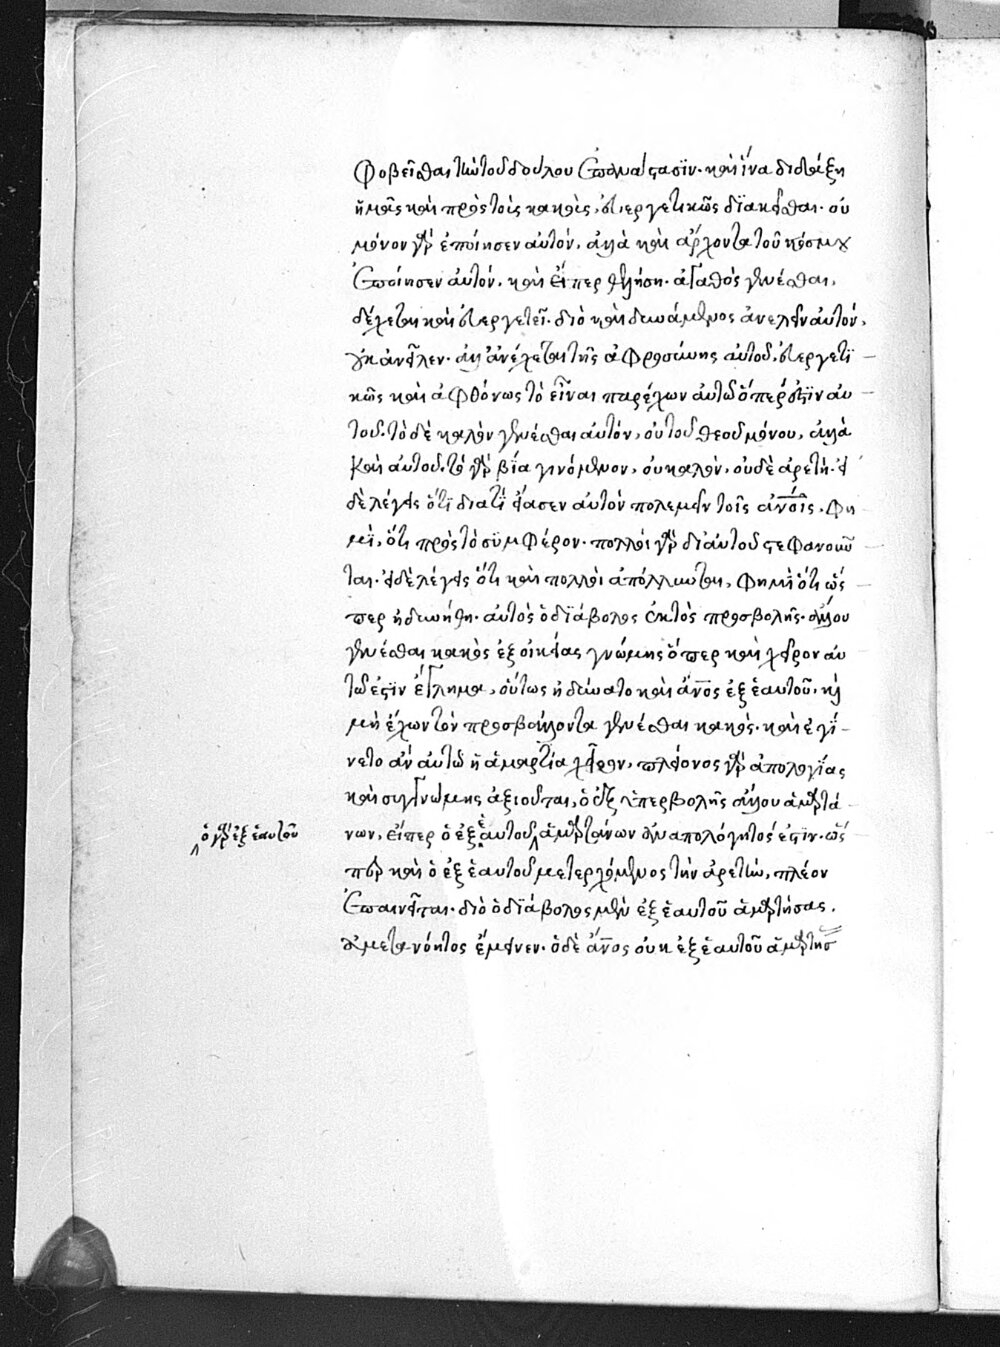 φοβεῖσθαι τὴν τοῦ δούλου ἐπανάστασϊν· καὶ ἵνα διδάξη
ἡμᾶς καὶ πρὸς τοὺς κακοὺς, εὐεργετικῶς δϊακεῖσθαι· οὐ
μόνον γὰρ ἐποίησεν αὐτὸν, ἀλλὰ καὶ ἄρχοντα τοῦ κόσμου
ἐποίησεν αὐτόν. καὶ εἴπερ θελήση ἀγαθὸς γενέσθαι,
δέχεται καὶ εὐεργετεῖ. διὸ καὶ δυνάμενος ἀνελεῖν αὐτὸν,
οὐκ ἀνεῖλεν· ἀλλ' ἀνέχεται τῆς ἀφροσύνης αὐτοῦ, εὐεργετϊ
κῶς καὶ ἀφθόνως τὸ εἶναι παρέχων αὐτῶ ὅπερ ἐστϊν αὐ
τοῦ. τὸ δὲ καλὸν γενέσθαι αὐτὸν, οὐ τοῦ θεοῦ μόνου, ἀλλὰ
καὶ αὐτοῦ. τὸ γὰρ βίᾳ γινόμενον, οὐ καλὸν, οὐδὲ ἀρετή. εἰ
δὲ λέγεις ὅτϊ διατί εἴασεν αὐτὸν πολεμεῖν τοῖς ἀνοῖς, φη
μῒ, ὅτι πρὸς τὸ συμφέρον· πολλοὶ γὰρ δι' αὐτοῦ στεφανοῦν
ται. εἰ δὲ λέγεις ὅτι καὶ πολλοὶ ἀπόλλυνται, φημὶ ὅτι ὥς
περ ἠδυνήθη αὐτὸς ὁ δϊάβολος ἐκτὸς προσβολῆς ἄλλου
γενέσθαι κακὸς ἐξ οἰκείας γνώμης ὅπερ καὶ χεῖρον αὐ
τῶ ἐστϊν ἔγκλημα, οὕτως ἠδύνατο καὶ ἄνος ἐξ ἑαυτοῦ, καὶ
μὴ ἔχων τὸν προσβάλλοντα γενέσθαι κακός· καὶ ἐγί
νετο ἂν αὐτῶ ἡ ἁμαρτία χεῖρον, πλείονος γὰρ ἀπολογίας
καὶ συγγνώμης ἀξιοῦται, ὁ ἐξ ὑπερβολῆς ἄλλου ἁμαρτά
νων, εἴπερ ὁ ἐξ ἑαυτοῦ ἁμαρτάνων ἀναπολόγητός ἐστϊν· ὥς
ὁ γὰρ ἐξ ἑαυτοῦ
περ καὶ ὁ ἐξ ἑαυτοῦ μετερχόμενος τὴν ἀρετὴν, πλέον
ἐπαινεῖται. διὸ ὁ δϊάβολος μὲν ἐξ ἑαυτοῦ ἁμαρτήσας,
ἀμετανόητος ἔμεινεν. ὁ δὲ ἄνος οὐκ ἐξ ἑαυτοῦ ἁμαρτήσ